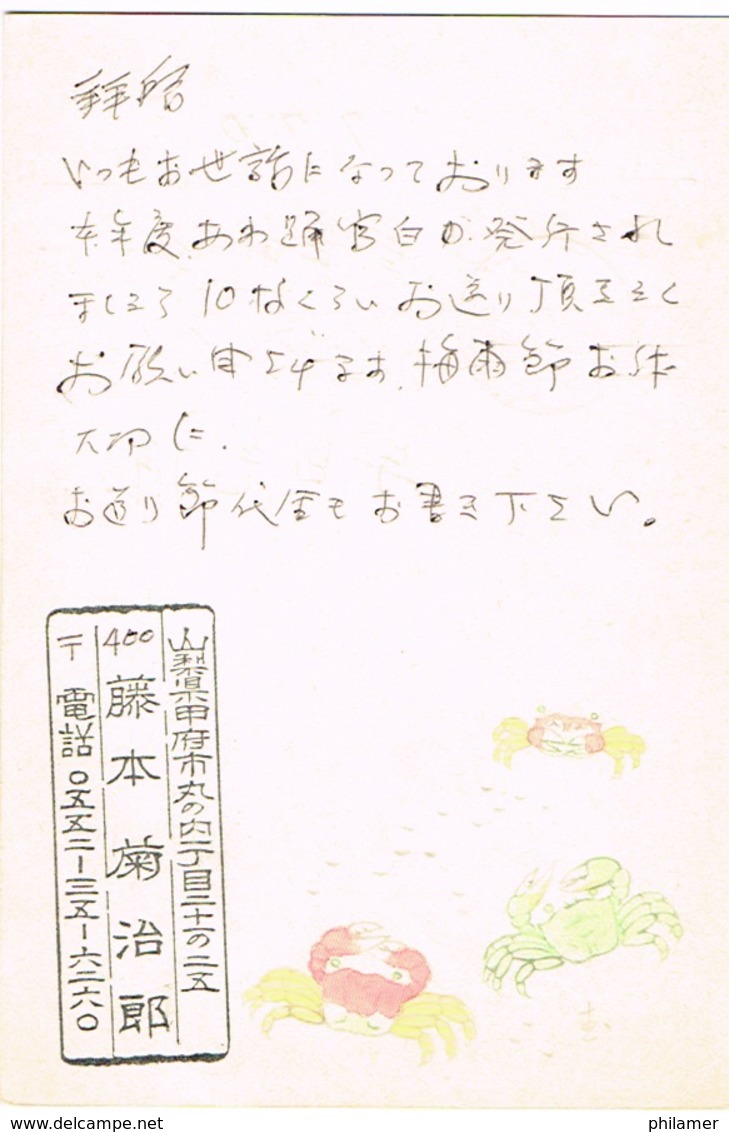 拝啓
いつもお世話になっております
本年度、あわ踊官白が発行され
ましたら10枚くらいお送り頂きたく
お願い申上げます、梅雨節お体
大切に.
お送り節代金もお書き下さい。
山梨県甲府市丸の内二丁目三十一の二五
400 藤本菊治郎
〒 電話〇五五二-三五-六二六〇
www.delcampe.net
philamer